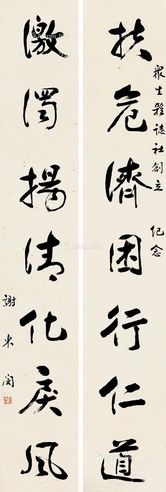 眾生雜誌社創立 紀念
扶危濟困行仁道
激濁揚清化戾風
謝東閔